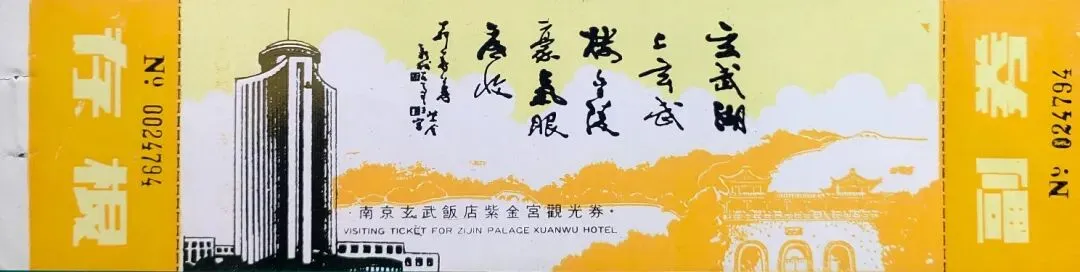 存根
№ 024794
玄武湖
上玄武
楼金陵
豪氣眼
底收
·南京玄武飯店紫金宮觀光券·
VISITING TICKET FOR ZIJIN PALACE XUANWU HOTEL
副券
№ 024794